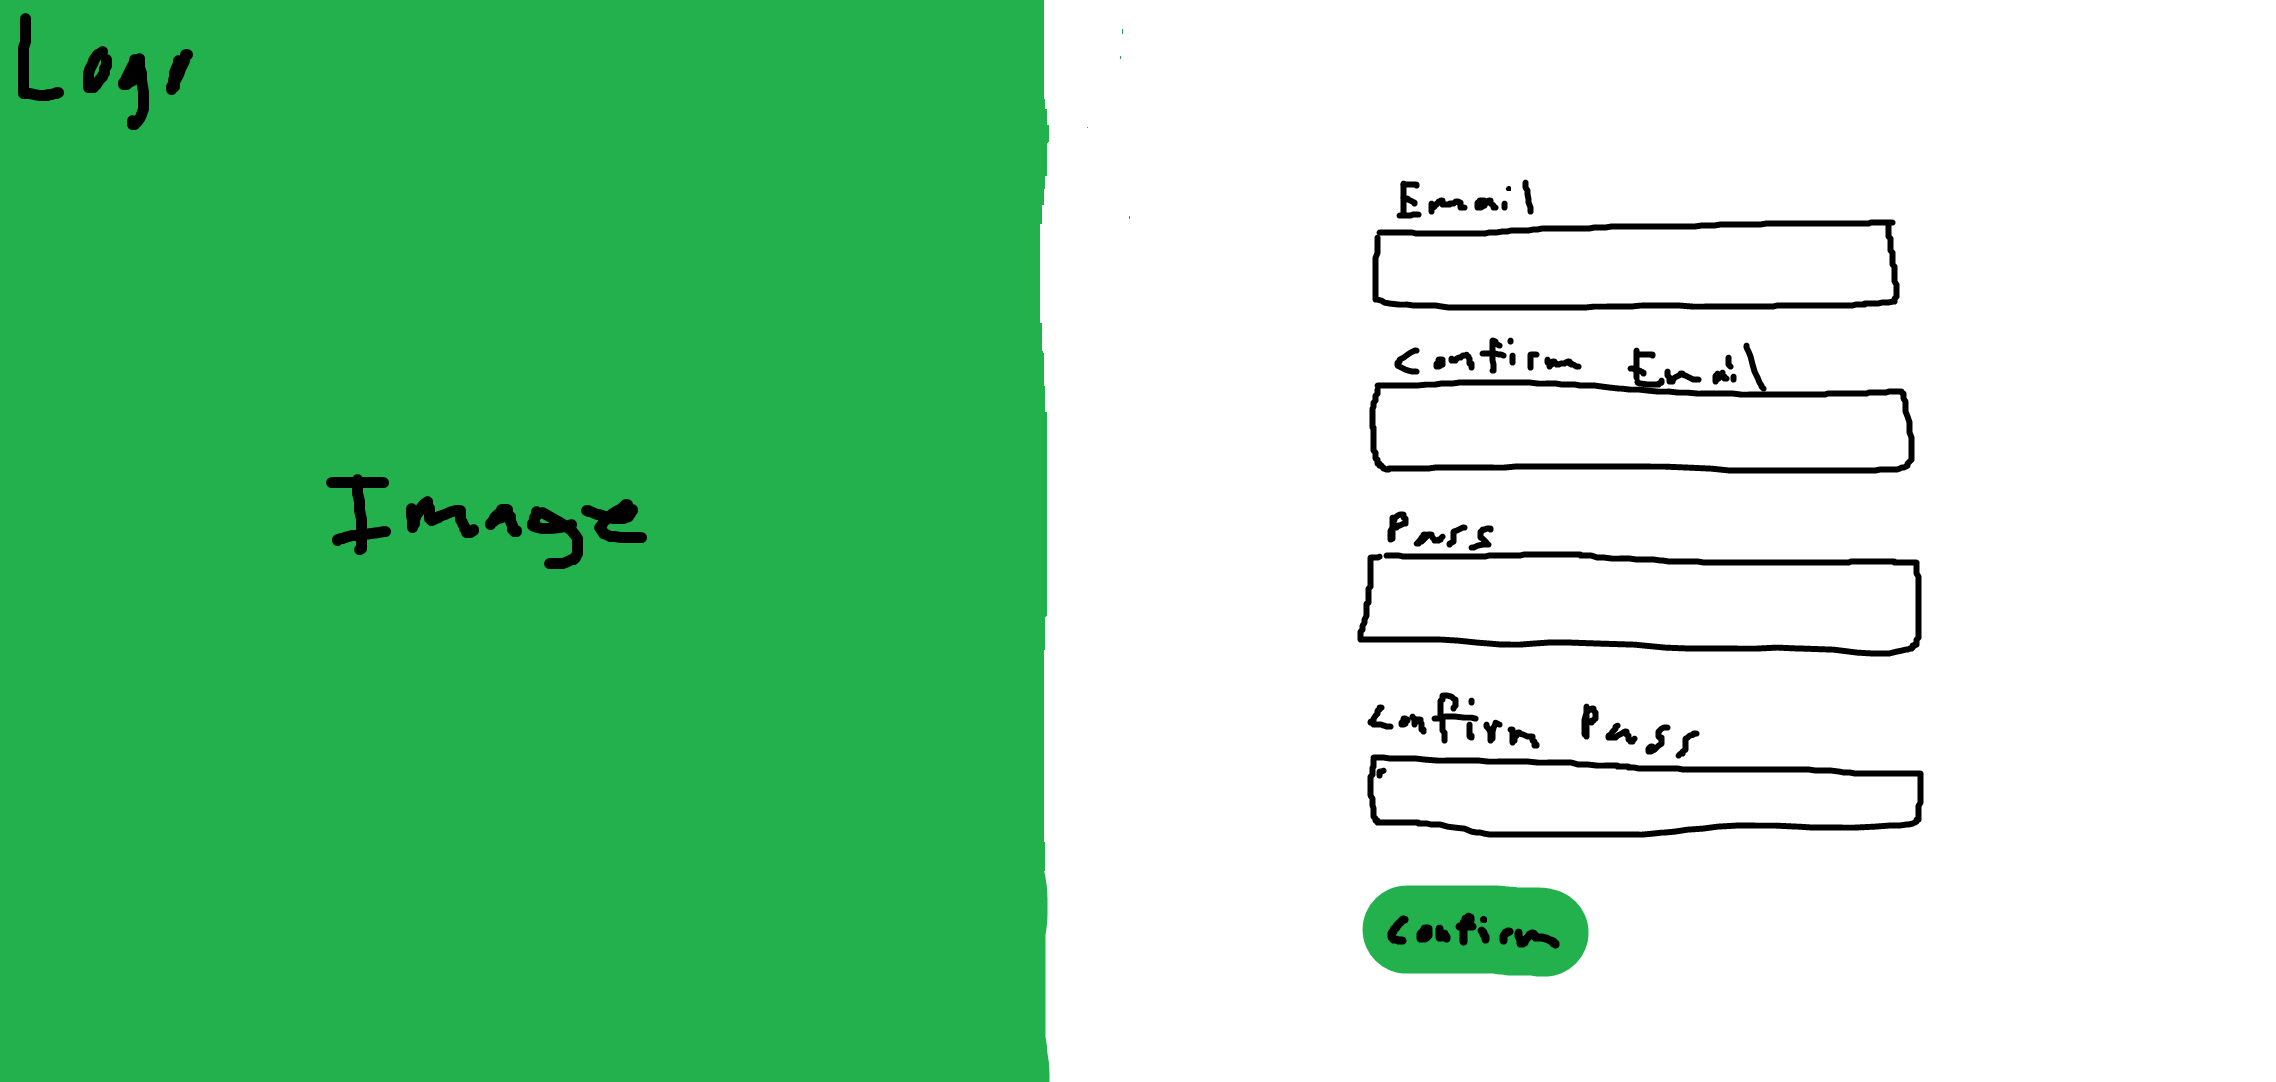 Logo
Image
Email
Confirm Email
Pass
Confirm Pass
Confirm